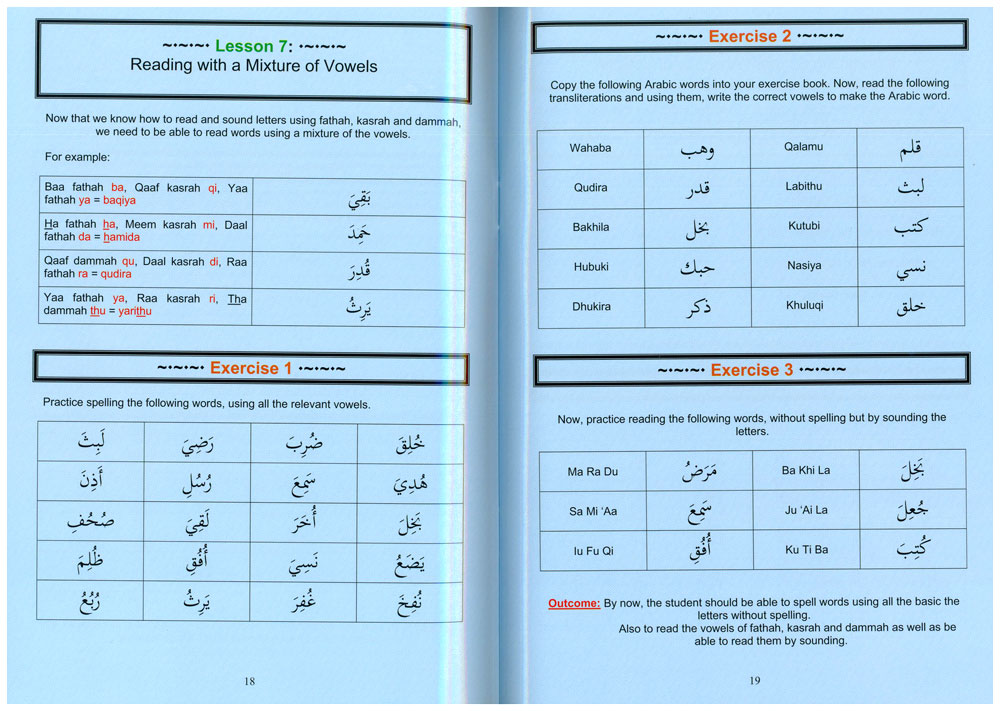 ~·~·~· Lesson 7: ·~·~·~
Reading with a Mixture of Vowels
Now that we know how to read and sound letters using fathah, kasrah and dammah,
we need to be able to read words using a mixture of the vowels.
For example:
Baa fathah ba, Qaaf kasrah qi, Yaa
fathah ya = baqiya
بَقِيَ
Ha fathah ha, Meem kasrah mi, Daal
fathah da = hamida
حَمِدَ
Qaaf dammah qu, Daal kasrah di, Raa
fathah ra = qudira
قُدِرَ
Yaa fathah ya, Raa kasrah ri, Tha
dammah thu = yarithu
يَرِثُ
~·~·~· Exercise 1 ·~·~·~
Practice spelling the following words, using all the relevant vowels.
خُلِقَ ضُرِبَ رَضِيَ لَبِثَ
هُدِيَ سَمِعَ رُسُلِ أَذِنَ
بَخِلَ أُخَرَ لَقِيَ صُحُفِ
يَضَعُ نَسِيَ أُفُقِ ظُلِمَ
نُفِخَ غُفِرَ يَرِثُ رُبُعُ
18
~·~·~· Exercise 2 ·~·~·~
Copy the following Arabic words into your exercise book. Now, read the following
transliterations and using them, write the correct vowels to make the Arabic word.
Wahaba وهب Qalamu قلم
Qudira قدر Labithu لبث
Bakhila بخل Kutubi كتب
Hubuki حبك Nasiya نسي
Dhukira ذكر Khuluqi خلق
~·~·~· Exercise 3 ·~·~·~
Now, practice reading the following words, without spelling but by sounding the
letters.
Ma Ra Du مَرَضُ Ba Khi La بَخِلَ
Sa Mi ‘Aa سَمِعَ Ju ‘Ai La جُعِلَ
Iu Fu Qi أُفُقِ Ku Ti Ba كُتِبَ
Outcome: By now, the student should be able to spell words using all the basic the
letters without spelling.
Also to read the vowels of fathah, kasrah and dammah as well as be
able to read them by sounding.
19